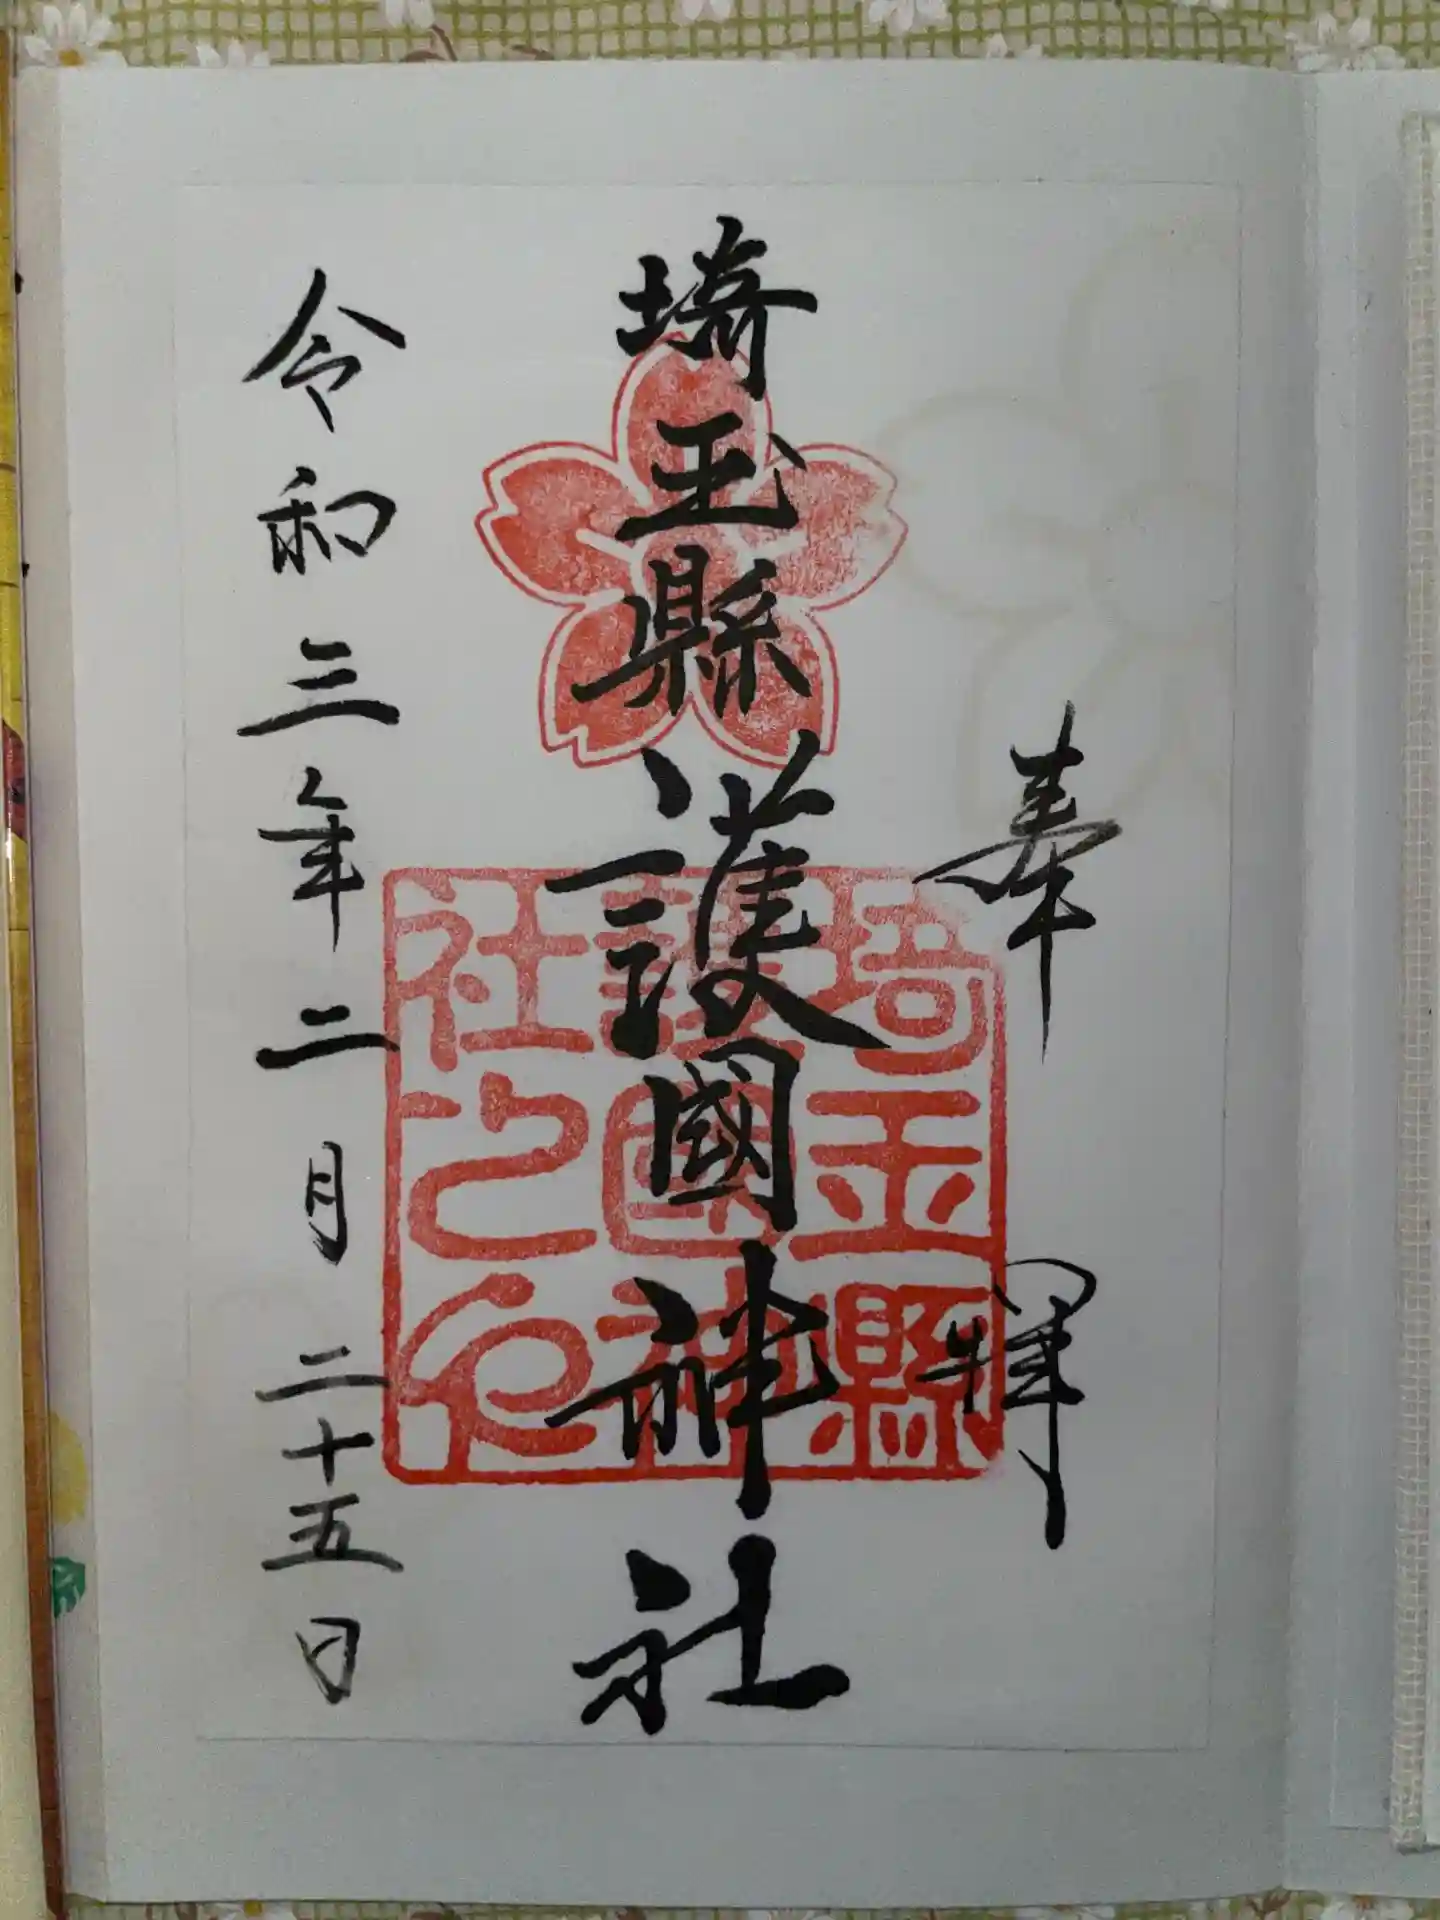 奉拝
埼玉縣護國神社
埼玉縣
護國神
社之印
令和三年二月二十五日